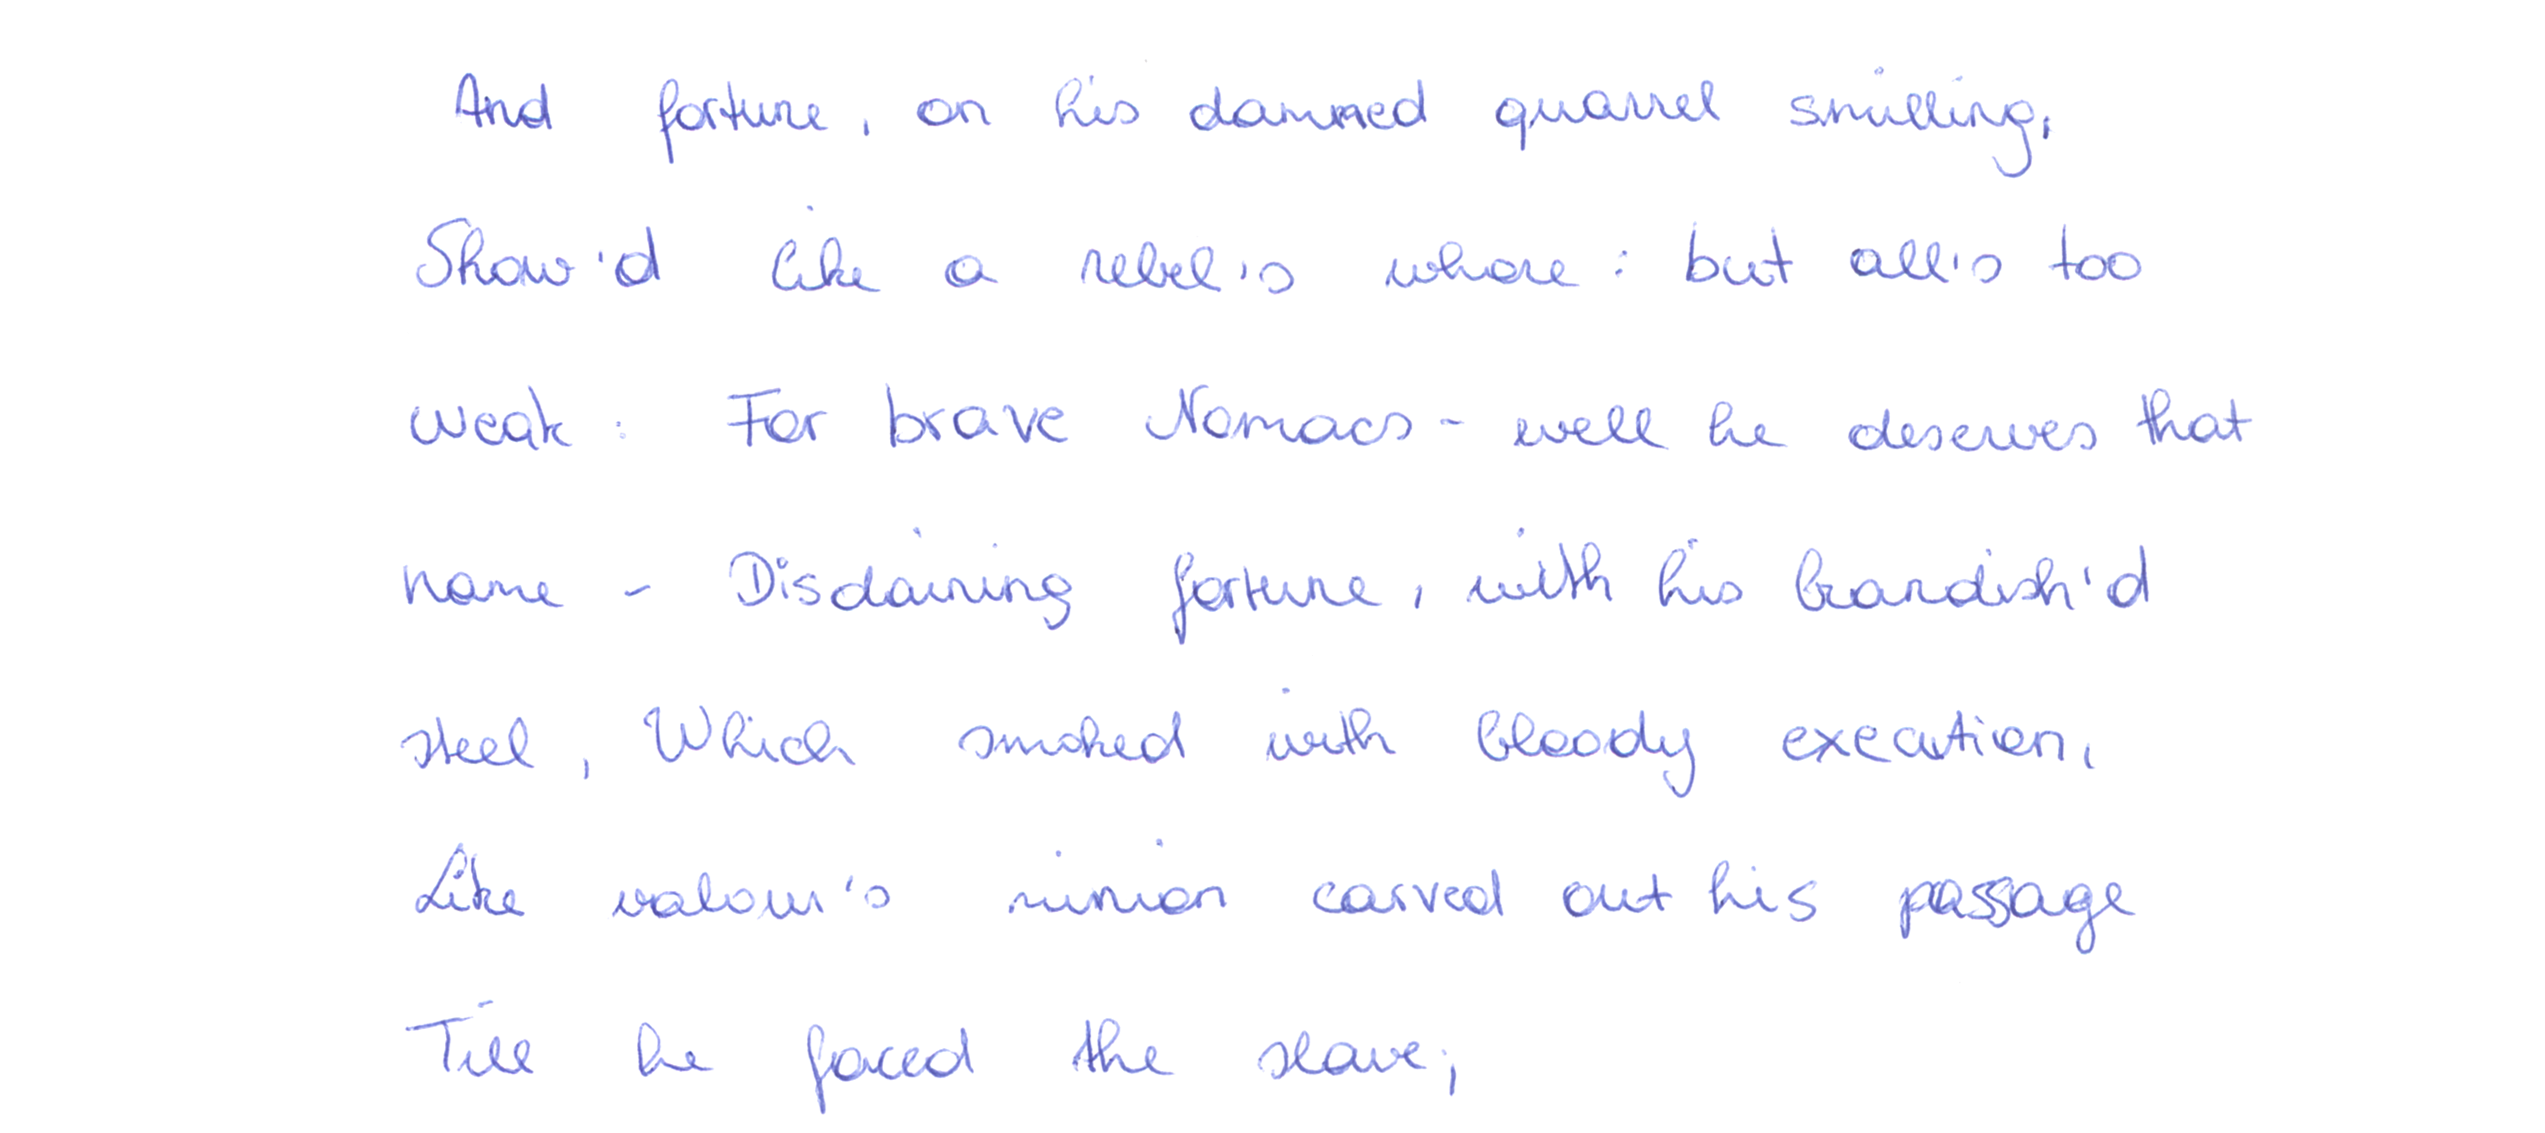 And fortune, on his damned quarrel smiling,
Show'd like a rebel's whore: but all's too
weak: For brave Nomacs - well he deserves that
name - Disdaining fortune, with his brandish'd
steel, Which smoked with bloody execution,
Like valour's minion carved out his passage
Till he faced the slave;